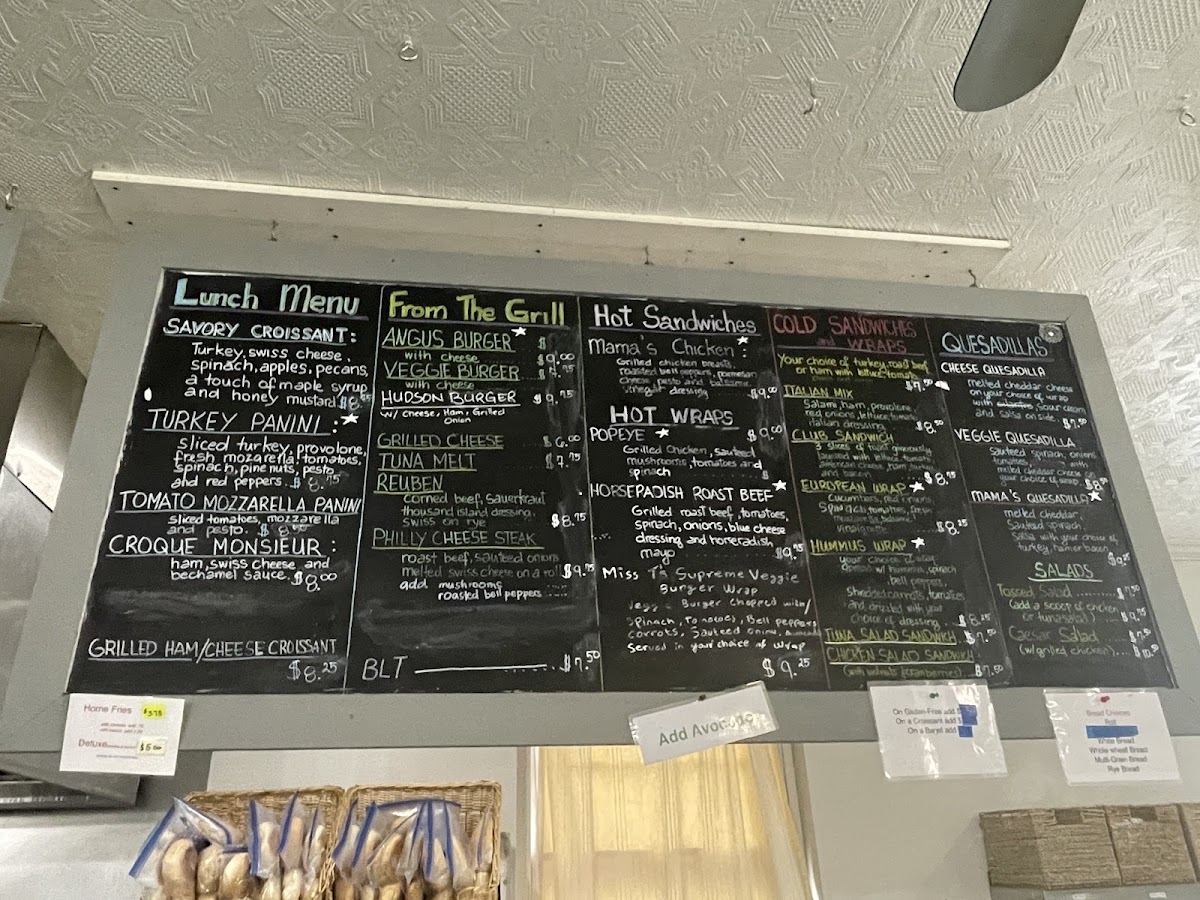 Lunch Menu
SAVORY CROISSANT:
Turkey, swiss cheese,
spinach, apples, pecans,
a touch of maple syrup
and honey mustard
TURKEY PANINI:
sliced turkey, provolone,
fresh mozarella, tomatoes,
spinach, pine nuts, pesto
and red peppers. $8.75
TOMATO MOZZARELLA PANINI
sliced tomatoes, mozzarella
and pesto.
CROQUE MONSIEUR:
ham, swiss cheese and
bechamel sauce. $8.00
GRILLED HAM/CHEESE CROISSANT
$8.25
From The Grill
ANGUS BURGER
with cheese $9.00
VEGGIE BURGER
with cheese
HUDSON BURGER $9.75
w/ cheese, Ham, Grilled
Onion
GRILLED CHEESE $6.00
TUNA MELT $7.75
REUBEN
corned beef, sauerkraut
thousand island dressing,
swiss on rye $8.75
PHILLY CHEESE STEAK
roast beef, sauteed onions
melted swiss cheese on a roll $9.75
add mushrooms
roasted bell peppers
BLT $7.50
Hot Sandwiches
Mama's Chicken:
Grilled chicken breasts,
roasted bell peppers, parmesan
cheese, pesto and balsamic
vinegar dressing $9.00
HOT WRAPS
POPEYE $9.00
Grilled chicken, sauteed
mushrooms, tomatoes and
spinach
HORSEPADISH ROAST BEEF
Grilled roast beef, tomatoes,
spinach, onions, blue cheese
dressing and horseradish
mayo $9.75
Miss T's Supreme Veggie
Burger Wrap
Veggie Burger chopped with/
Spinach, Tomatoes, Bell peppers
carrots, Sauteed onions, avocado
served in your choice of wrap
$9.25
COLD SANDWICHES
and WRAPS
Your choice of turkey, roast beef
or ham with lettuce, tomato
$7.50
ITALIAN MIX
Salami, ham, provolone,
red onions, lettuce, tomato
italian dressing $8.50
CLUB SANDWICH
3 slices of toast generously
american cheese, ham, turkey
and bacon $8.25
EUROPEAN WRAP
cucumbers, red onions,
spinach, tomatoes, fresh
vinaigrette $8.25
HUMMUS WRAP
your choice of wrap
spread w/ hummus, spinach
bell peppers,
Shredded carrots, tomatoes
and drizzled with your
choice of dressing $8.25
TUNA SALAD SANDWICH $7.50
CHICKEN SALAD SANDWICH
(with walnuts/cranberries) $7.50
QUESADILLAS
CHEESE QUESADILLA
melted cheddar cheese
on your choice of wrap
with sour cream
and salsa on side. $7.50
VEGGIE QUESADILLA
sauteed spinach, onions,
tomatoes, with
melted cheddar cheese on
your choice of wrap. $8.50
MAMA'S QUESADILLA
melted cheddar,
sauteed spinach
Salsa with your choice of
turkey, ham or bacon
$9.25
SALADS
Tossed Salad $7.50
(add a scoop of chicken
or tuna salad) $9.75
Caesar Salad $7.50
(w/grilled chicken)
Home Fries $3.75
Deluxe $5.00
Add Avocado
On Gluten-Free add $
On a Croissant add $
On a Bagel add
Bread Choices
Roll
White Bread
Whole wheat Bread
Multi-Grain Bread
Rye Bread